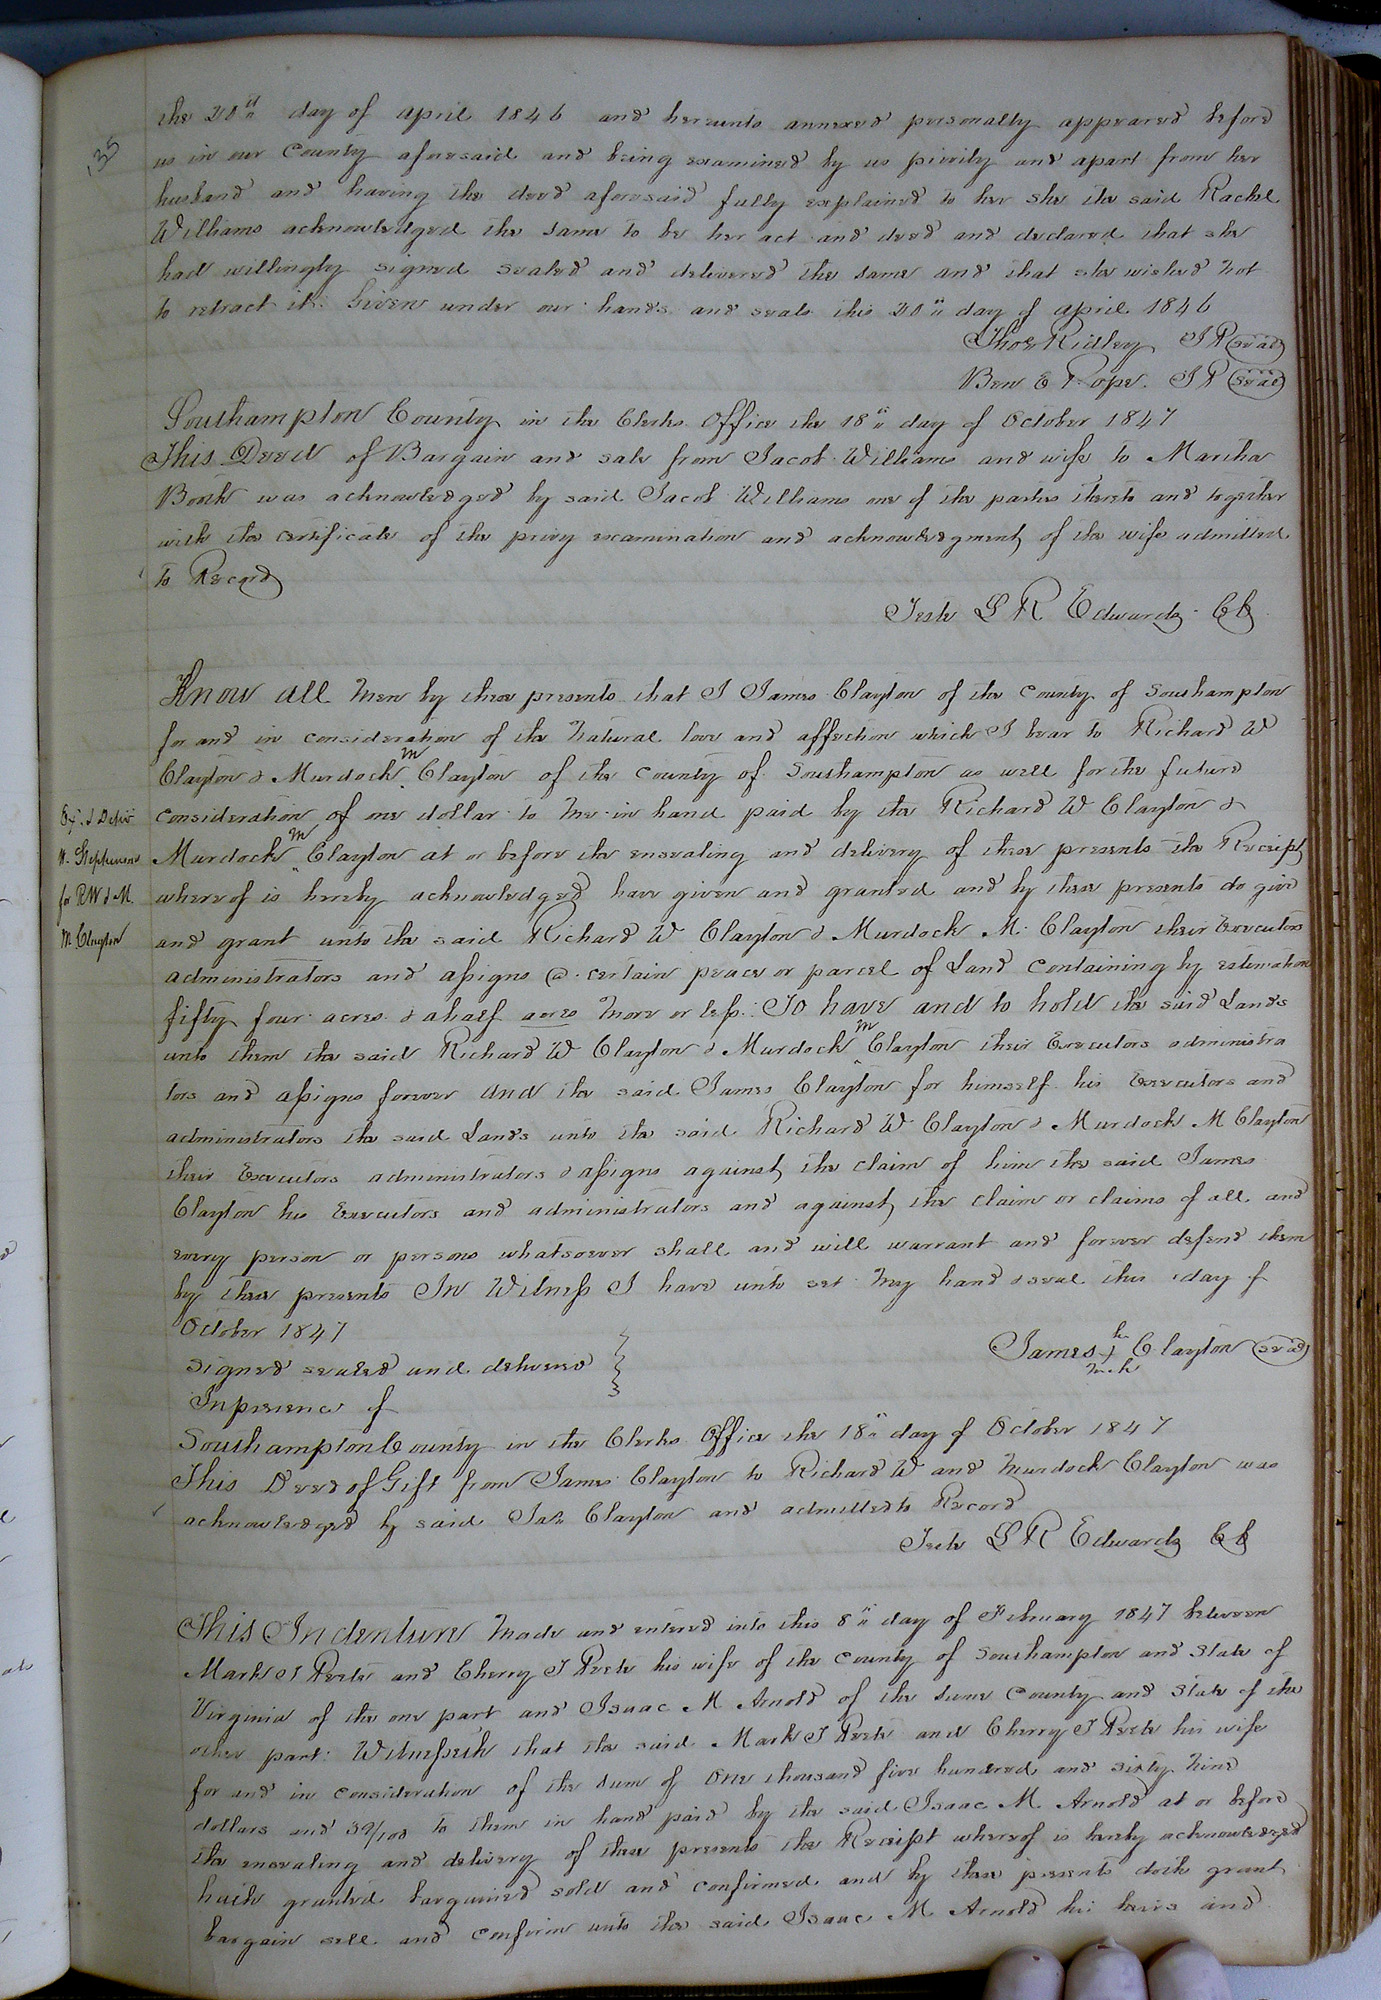 135
the 20th day of april 1846 and hereunto annexed personally appeared before
us in our County aforesaid and being examined by us privily and apart from her
husband and having the deed aforesaid fully explained to her she the said Rachel
Williams acknowledged the same to be her act and deed and declared that she
had willingly signed sealed and delivered the same and that she wished not
to retract it. Given under our hands and seals this 20" day of april 1846
Thos Ridley JP (seal)
Ben E Pope. JP (seal)
Southampton County in the Clerks Office the 18" day of October 1847
This Deed of Bargain and sale from Jacob Williams and wife to Martha
Booth was acknowledged by said Jacob Williams one of the parties thereto and together
with the certificate of the privy examination and acknowledgment of the wife admitted
to Record
Teste L R Edwards Ck
Know all Men by these presents that I James Clayton of the County of Southampton
for and in consideration of the Natural love and affection which I bear to Richard W
Clayton & Murdock M Clayton of the County of Southampton as well for the future
Ex'd & Deliv'd
consideration of one dollar to me in hand paid by the Richard W Clayton &
W. Stephenson
Murdock M Clayton at or before the ensealing and delivery of these presents the Receipt
for RW & M.
whereof is hereby acknowledged have given and granted and by these presents do give
M Clayton
and grant unto the said Richard W Clayton & Murdock M. Clayton their Executors
administrators and assigns a certain peace or parcel of Land Containing by estimation
fifty four acres & a half acres more or less: To have and to hold the said Lands
unto them the said Richard W Clayton & Murdock M Clayton their Executors administra
tors and assigns forever and the said James Clayton for himself his Executors and
administrators the said Lands unto the said Richard W Clayton & Murdock M Clayton
their Executors administrators & assigns against the claim of him the said James
Clayton his Executors and administrators and against the claim or claims of all and
every person or persons whatsoever shall and will warrant and forever defend them
by these presents In Witness I have unto set my hand & seal this day of
October 1847
James his + mark Clayton (seal)
Signed sealed and delivered
In presence of
Southampton County in the Clerks Office the 18" day of October 1847
This Deed of Gift from James Clayton to Richard W and Murdock Clayton was
acknowledged by said Jas Clayton and admitted to Record
Teste L R Edwards Ck
This Indenture made and entered into this 8" day of February 1847 between
Mark J Peete and Cherry J Peete his wife of the County of Southampton and State of
Virginia of the one part and Isaac M Arnold of the same County and State of the
other part: Witnesseth that the said Mark J Peete and Cherry J Peete his wife
for and in consideration of the sum of One thousand five hundred and sixty nine
dollars and 39/100 to them in hand paid by the said Isaac M. Arnold at or before
the ensealing and delivery of these presents the Receipt whereof is hereby acknowledged
hath granted bargained sold and confirmed and by these presents doth grant
bargain sell and confirm unto the said Isaac M Arnold his heirs and